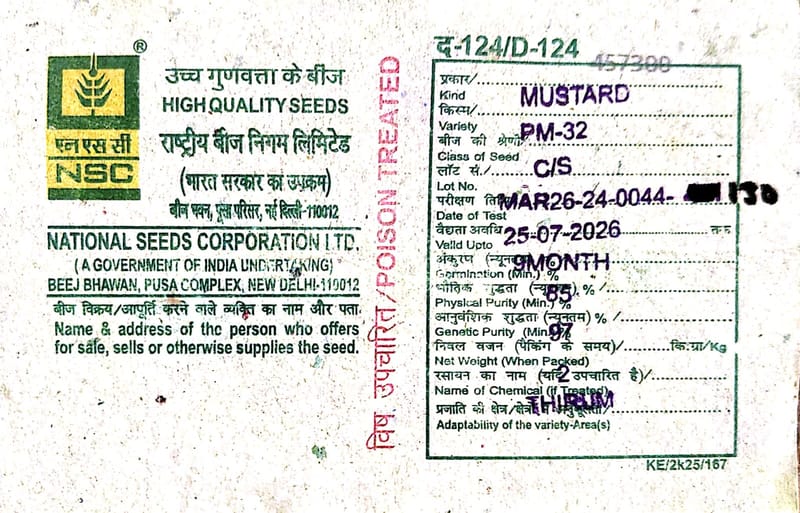 ®
एन एस सी
NSC
उच्च गुणवत्ता के बीज
HIGH QUALITY SEEDS
राष्ट्रीय बीज निगम लिमिटेड
(भारत सरकार का उपक्रम)
बीज भवन, पूसा परिसर, नई दिल्ली-110012
NATIONAL SEEDS CORPORATION LTD.
(A GOVERNMENT OF INDIA UNDERTAKING)
BEEJ BHAWAN, PUSA COMPLEX, NEW DELHI-110012
बीज विक्रय/आपूर्ति करने वाले व्यक्ति का नाम और पता.
Name & address of the person who offers
for sale, sells or otherwise supplies the seed.
विष उपचारित/POISON TREATED
द-124/D-124
457300
प्रकार/
Kind MUSTARD
किस्म/
Variety PM-32
बीज की श्रेणी
Class of Seed C/S
लॉट सं./
Lot No. MAR26-24-0044- 130
परीक्षण तिथि
Date of Test
वैद्यता अवधि 25-07-2026 तक
Valid Upto
अंकुरण (न्यूनतम) 9MONTH
Germination (Min.) %
भौतिक शुद्धता (न्यूनतम) %/ 85
Physical Purity (Min.) %
आनुवंशिक शुद्धता (न्यूनतम) %/
Genetic Purity (Min.) % 97
निवल वजन (पैकिंग के समय)/ कि.ग्रा/Kg
Net Weight (When Packed)
रसायन का नाम (यदि उपचारित है)/ 2
Name of Chemical (if Treated)
THIRUM
प्रजाति की क्षेत्र/क्षेत्रों
Adaptability of the variety-Area(s)
KE/2k25/167